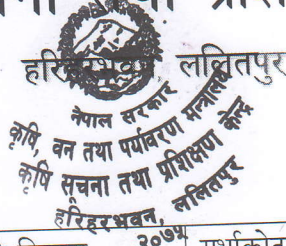 हरिहरभवन ललितपुर
नेपाल सरकार
कृषि, वन तथा पर्यावरण मन्त्रालय
कृषि सूचना तथा प्रशिक्षण केन्द्र
हरिहरभवन, ललितपुर
२०७५